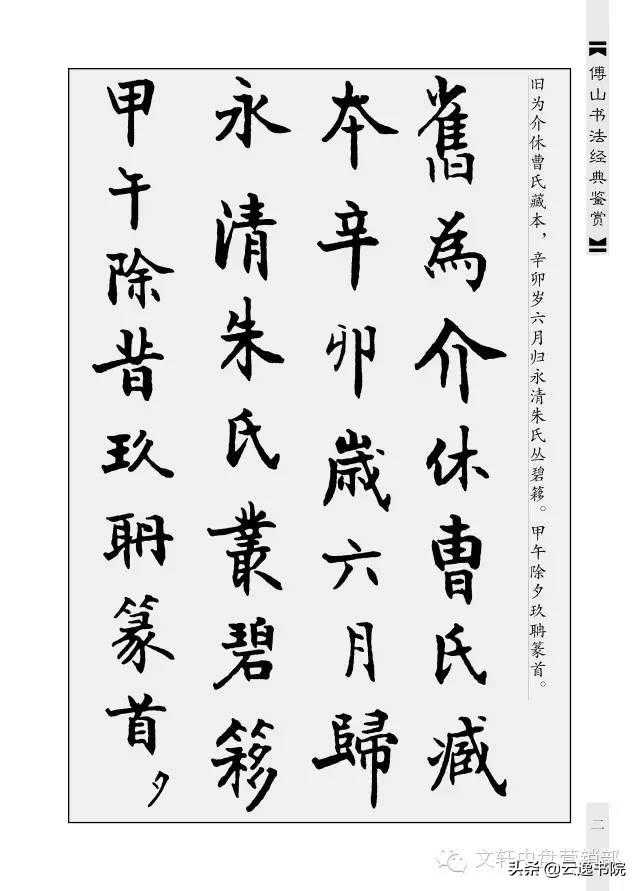 【傅山书法经典鉴赏】
旧为介休曹氏藏本，辛卯岁六月归永清朱氏丛碧簃。甲午除夕玖聃篆首。
舊為介休曹氏臧
本辛卯歲六月歸
永清朱氏叢碧簃
甲午除昔玖聃篆首夕
二
文轩中盘营销部
头条@云逸书院